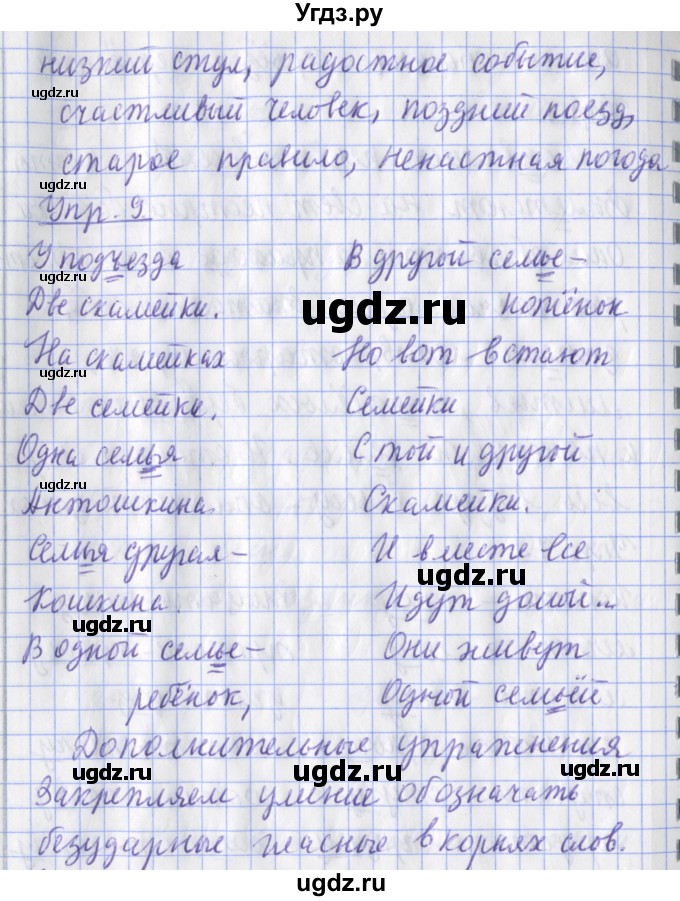 Угдз.ру
низкий стул, радостное событие,
счастливый человек, поздний поезд,
старое правило, ненастная погода
Упр. 9
У подъезда
Две скамейки.
На скамейках
Две семейки.
Одна семья
Антошкина.
Семья другая –
Кошкина.
В одной семье –
ребёнок,
В другой семье –
котёнок
Но вот встают
Семейки
С той и другой
Скамейки.
И вместе все
Идут домой...
Они живут
Одной семьёй
Дополнительные упражнения
Закрепляем умение обозначать
безударные гласные в корнях слов.
ugdz.ru
ugdz.ru
ugdz.ru
ugdz.ru
ugdz.ru
ugdz.ru
ugdz.ru
ugdz.ru
ugdz.ru
ugdz.ru
ugdz.ru
ugdz.ru
ugdz.ru